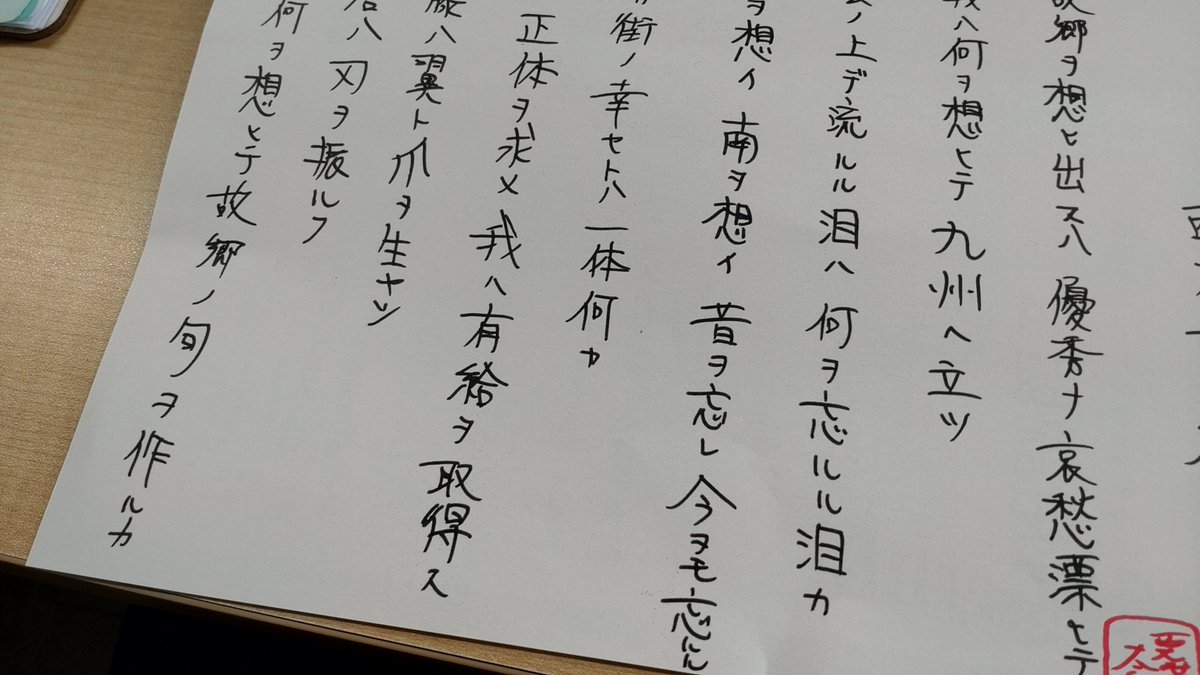 故郷ヲ想ヒ出スハ 優秀ナ哀愁漂ヒテ
我ハ何ヲ想ヒテ九州ヘ立ツ
ノ上デ流ルル泪ハ 何ヲ忘ルル泪カ
ヲ想イ 南ヲ想イ 昔ヲ忘レ 今ヲモ忘ルル
街ノ幸セトハ一体何カ
正体ヲ求メ 我ハ有給ヲ取得ス
ハ翼ト爪ヲ生ヤシ
ハ刃ヲ振ルフ
何ヲ想ヒテ故郷ノ句ヲ作ルカ